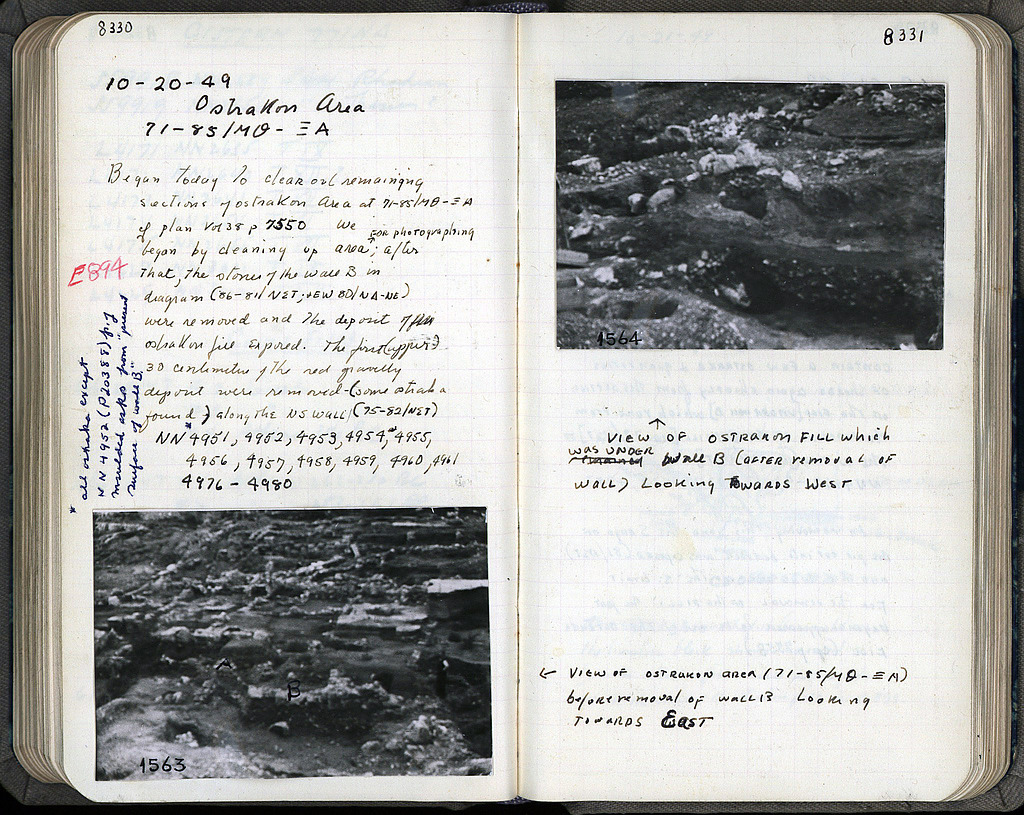 8330
10-20-49
Ostrakon Area
71-85/ΜΘ-ΞΑ
Began today to clear out remaining
sections of ostrakon Area at 71-85/ΜΘ-ΞΑ
cf plan Vol 38 p 7550 We
began by cleaning up area FOR photographing; after
that, the stones of the wall B in
diagram
were removed and the deposit of
ostrakon fill exposed. The first (approx)
30 centimetres of the red gravelly
deposit were removed (some ostraka
found) along the NS wall (75-82/ΝΕΤ)
NN 4951, 4952, 4953, 4954, 4955,
4956, 4957, 4958, 4959, 4960, 4961
4976 - 4980
E894
* all ostraka except
NN 4952 (P20388) frg
moulded askos from "present
surface of wall B."
A
B
1563
8331
1564
↑
VIEW OF OSTRAKON FILL which
WAS UNDER wall B (AFTER removal OF
WALL) Looking TOWARDS WEST
← VIEW OF OSTRAKON AREA (71-85/ΜΘ-ΞΑ)
before removal OF WALL B Looking
TOWARDS EAST